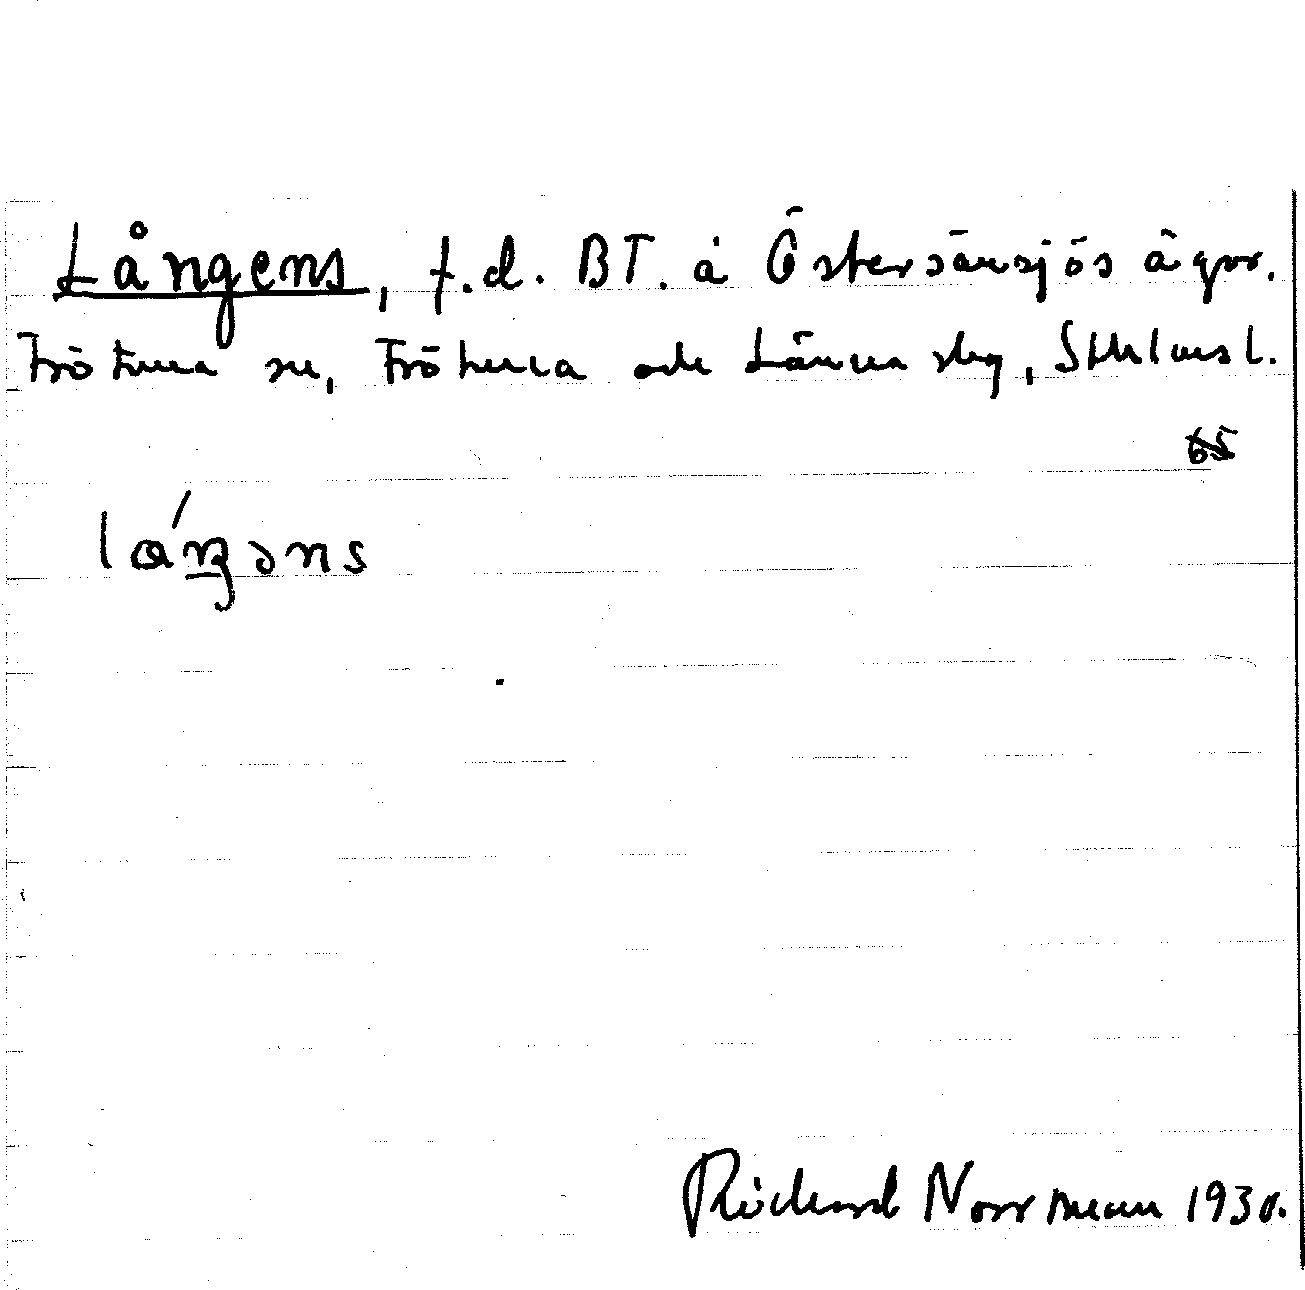 Långens, f.d. BT. å Östersänsjös ägor.
Frötuna sn, Frötuna och Länna slg, Sthlms l.
65
lɑ́ŋəns
Richard Norrman 1930.